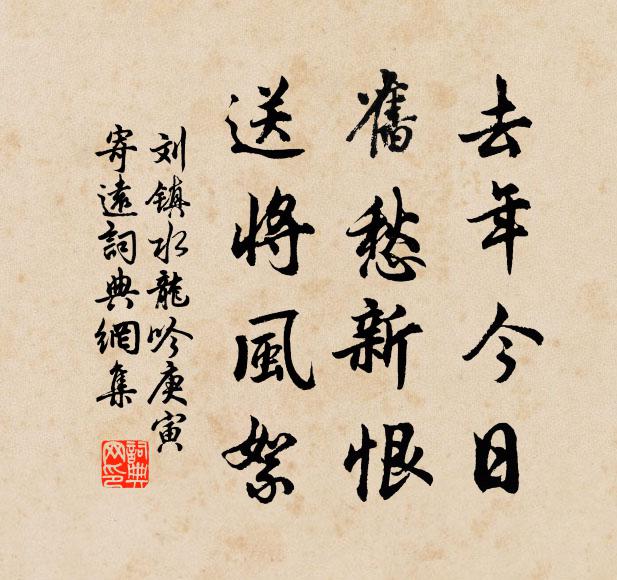 去年今日
舊愁新恨
送將風絮
刘镇水龍吟庚寅
寄遠詞典網集
詞典网印